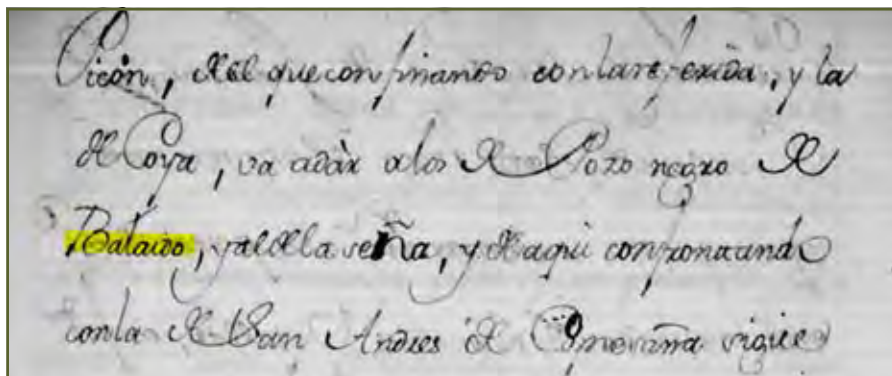 Picòn, del que confinando con la referida, y la
de Coya, va adàr alos de Pozo negro de
Balaido, y al de la seña, y de aqui confrontando
con la de San Andres de Comesaña sigue